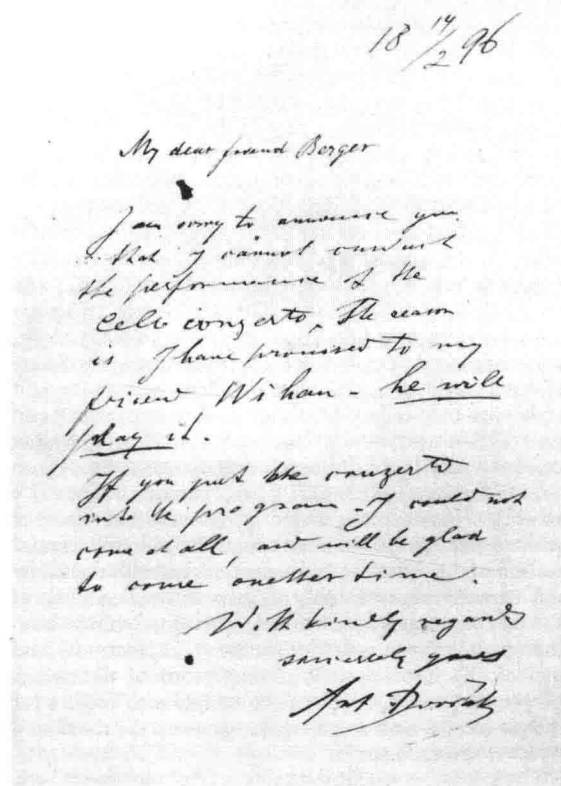 18 14/2 96
My dear friend Berger
I am sorry to announce you
that I cannot conduct
the performance of the
cello conzerto. The reason
is I have promised to my
friend Wihan – he will
play it.
If you put the conzerto
into the program I could not
come at all, and will be glad
to come onother time
With kindly regards
sincerely yours
Ant Dvorak